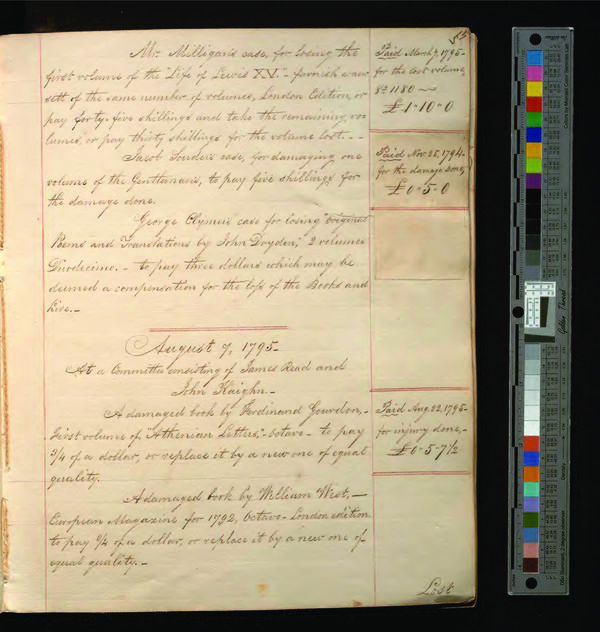 Mr. Milligan's case, for losing the
first volume of the "Life of Lewis XV."- furnish a new
sett of the same number of volumes, London Edition, or
pay forty-five shillings and take the remaining vo-
lumes, or pay thirty shillings for the volume lost. - -
Jacob case, for damaging one
volume of the Gentleman's, to pay five shillings for
the damage done.
George Clymer's case for losing "original
Poems and Translations by John Dryden," 2 volumes
Duodecimo. - to pay three dollars which may be
deemed a compensation for the loss of the Books and
fine. -
August 7, 1795-
At a Committee consisting of James Read and
John Kaighn. -
A damaged book by Ferdinand Gourdon, -
First volume of "Athenian Letters," octavo - to pay
3/4 of a dollar, or replace it by a new one of equal
quality.
A damaged book by William West, -
European Magazine for 1792, octavo London edition
to pay 3/4 of a dollar, or replace it by a new one of
equal quality. -
Lost
Paid March 7, 1795-
for the lost volume,
1180
£1-10-0
Paid Nov. 25, 1794.
for the damage done,
£0-5-0
Paid Aug. 22, 1795-
for injury done, -
£0-5-7 1/2